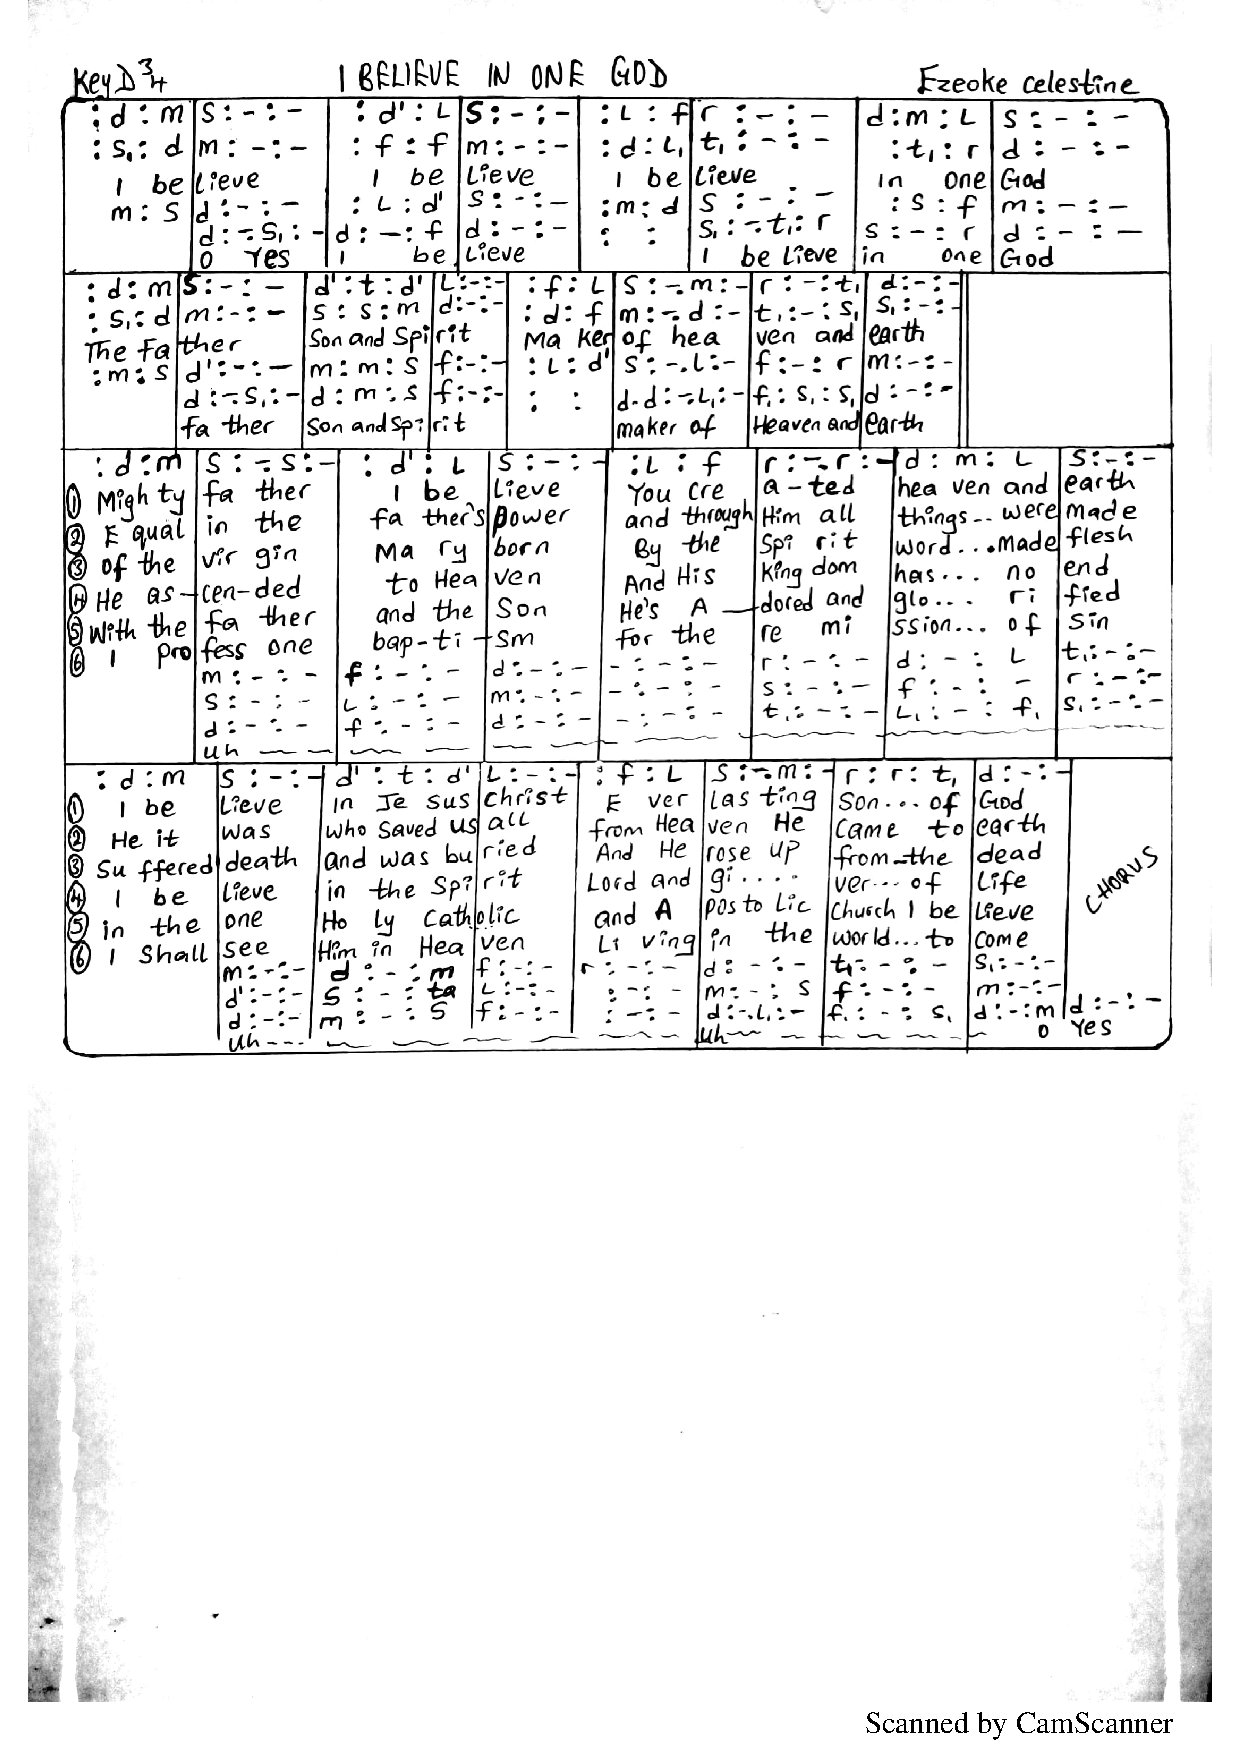 Key D 3/4 I BELIEVE IN ONE GOD Ezeoke Celestine
: d : m | s : - : - | : d' : L | s : - : - | : L : f | r : - : - | d : m : L | s : - : -
: s, : d | m : - : - | : f : f | m : - : - | : d : L, | t, : - : - | : t, : r | d : - : -
I be lieve I be lieve I be lieve in one God
m : s | d : - : - | : L : d' | s : - : - | : m : d | s : - : - | : s : f | m : - : -
d : -. s, : - | d : - : f | d : - : - | : : | s, : -. t, : r | s : - : r | d : - : -
O Yes I be lieve I be lieve in one God
: d : m | s : - : - | d' : t : d' | L : - : - | : f : L | s : -. m : - | r : - : t, | d : - : -
: s, : d | m : - : - | s : s : m | d : - : - | : d : f | m : -. d : - | t, : - : s, | s, : - : -
The Fa ther Son and Spi rit Ma ker of hea ven and earth
: m : s | d' : - : - | m : m : s | f : - : - | : L : d' | s : -. L : - | f : - : r | m : - : -
d : -. s, : - | d : m : s | f : - : - | : : | d. d : -. L, : - | f, : s, : s, | d : - : -
fa ther Son and Spi rit maker of Heaven and earth
: d : m | s : -. s : - | : d' : L | s : - : - | : L : f | r : -. r : - | d : m : L | s : - : -
① Migh ty fa ther I be lieve You cre a - ted hea ven and earth
② E qual in the fa ther's power and through Him all things .. were made
③ of the vir gin Ma ry born By the Spi rit word ... made flesh
④ He as - cen-ded to Hea ven And His King dom has ... no end
⑤ With the fa ther and the Son He's A - dored and glo ... ri fied
⑥ I pro fess one bap-ti - sm for the re mi ssion ... of sin
m : - : - | f : - : - | d : - : - | - : - : - | r : - : - | d : - : L | t, : - : -
s : - : - | L : - : - | m : - : - | - : - : - | s : - : - | f : - : - | r : - : -
d : - : - | f : - : - | d : - : - | - : - : - | t, : - : - | L, : - : f, | s, : - : -
uh
: d : m | s : - : - | d' : t : d' | L : - : - | : f : L | s : -. m : - | r : r : t, | d : - : -
① I be lieve in Je sus Christ E ver las ting Son ... of God
② He it was who saved us all from Hea ven He came to earth
③ Su ffered death and was bu ried And He rose up from - the dead
④ I be lieve in the Spi rit Lord and gi .... ver ... of Life
⑤ in the one Ho ly Catholic and A pos to lic Church I be lieve
⑥ I Shall see Him in Hea ven Li ving in the world ... to come
CHORUS
m : - : - | d : - : m | f : - : - | r : - : - | d : - : - | t, : - : - | s, : - : -
d' : - : - | s : - : ta | L : - : - | : - : - | m : - : s | f : - : - | m : - : -
d : - : - | m : - : s | f : - : - | : - : - | d : -. L, : - | f, : - : s, | d : - : m | d : - : -
Uh --- Uh O Yes
Scanned by CamScanner